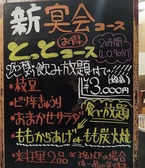 新宴会コース
お得!
とっとコース
2時間
L.O.90分
飲み放題付で
¥3,000円
・枝豆
・ピリ辛きゅうり
食べ放題
・おまかせサラダ
・ももからあげ
・もも炭火焼
・料理2品